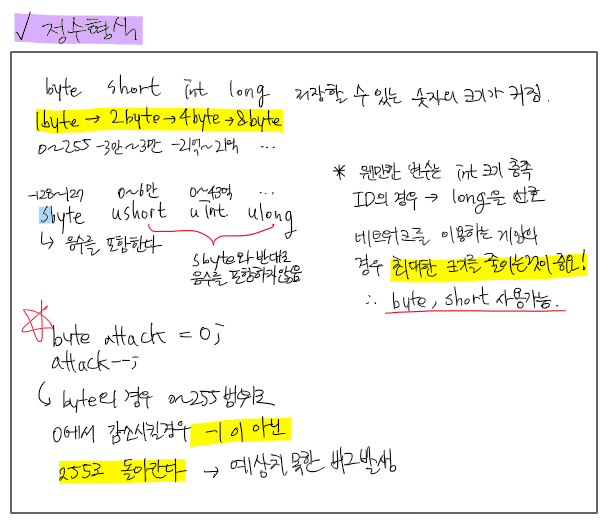 ✓ 정수형식
byte short int long 저장할 수 있는 숫자의 크기가 커짐.
1byte → 2byte → 4byte → 8byte
0~255 -3만~3만 -21억~21억 ...
-128~127 0~6만 0~43억 ...
sbyte ushort uint ulong
↳ 음수를 포함한다
sbyte와 반대로
음수를 포함하지 않음
* 웬만한 변수는 int 크기 충족
ID의 경우 → long을 선호
네트워크를 이용하는 게임의
경우 최대한 크기를 줄이는것이 중요!
∴ byte, short 사용가능.
☆ byte attack = 0;
attack--;
↳ byte의 경우 0~255 범위로
0에서 감소시킬경우 -1이 아닌
255로 돌아간다 → 예상치 못한 버그발생